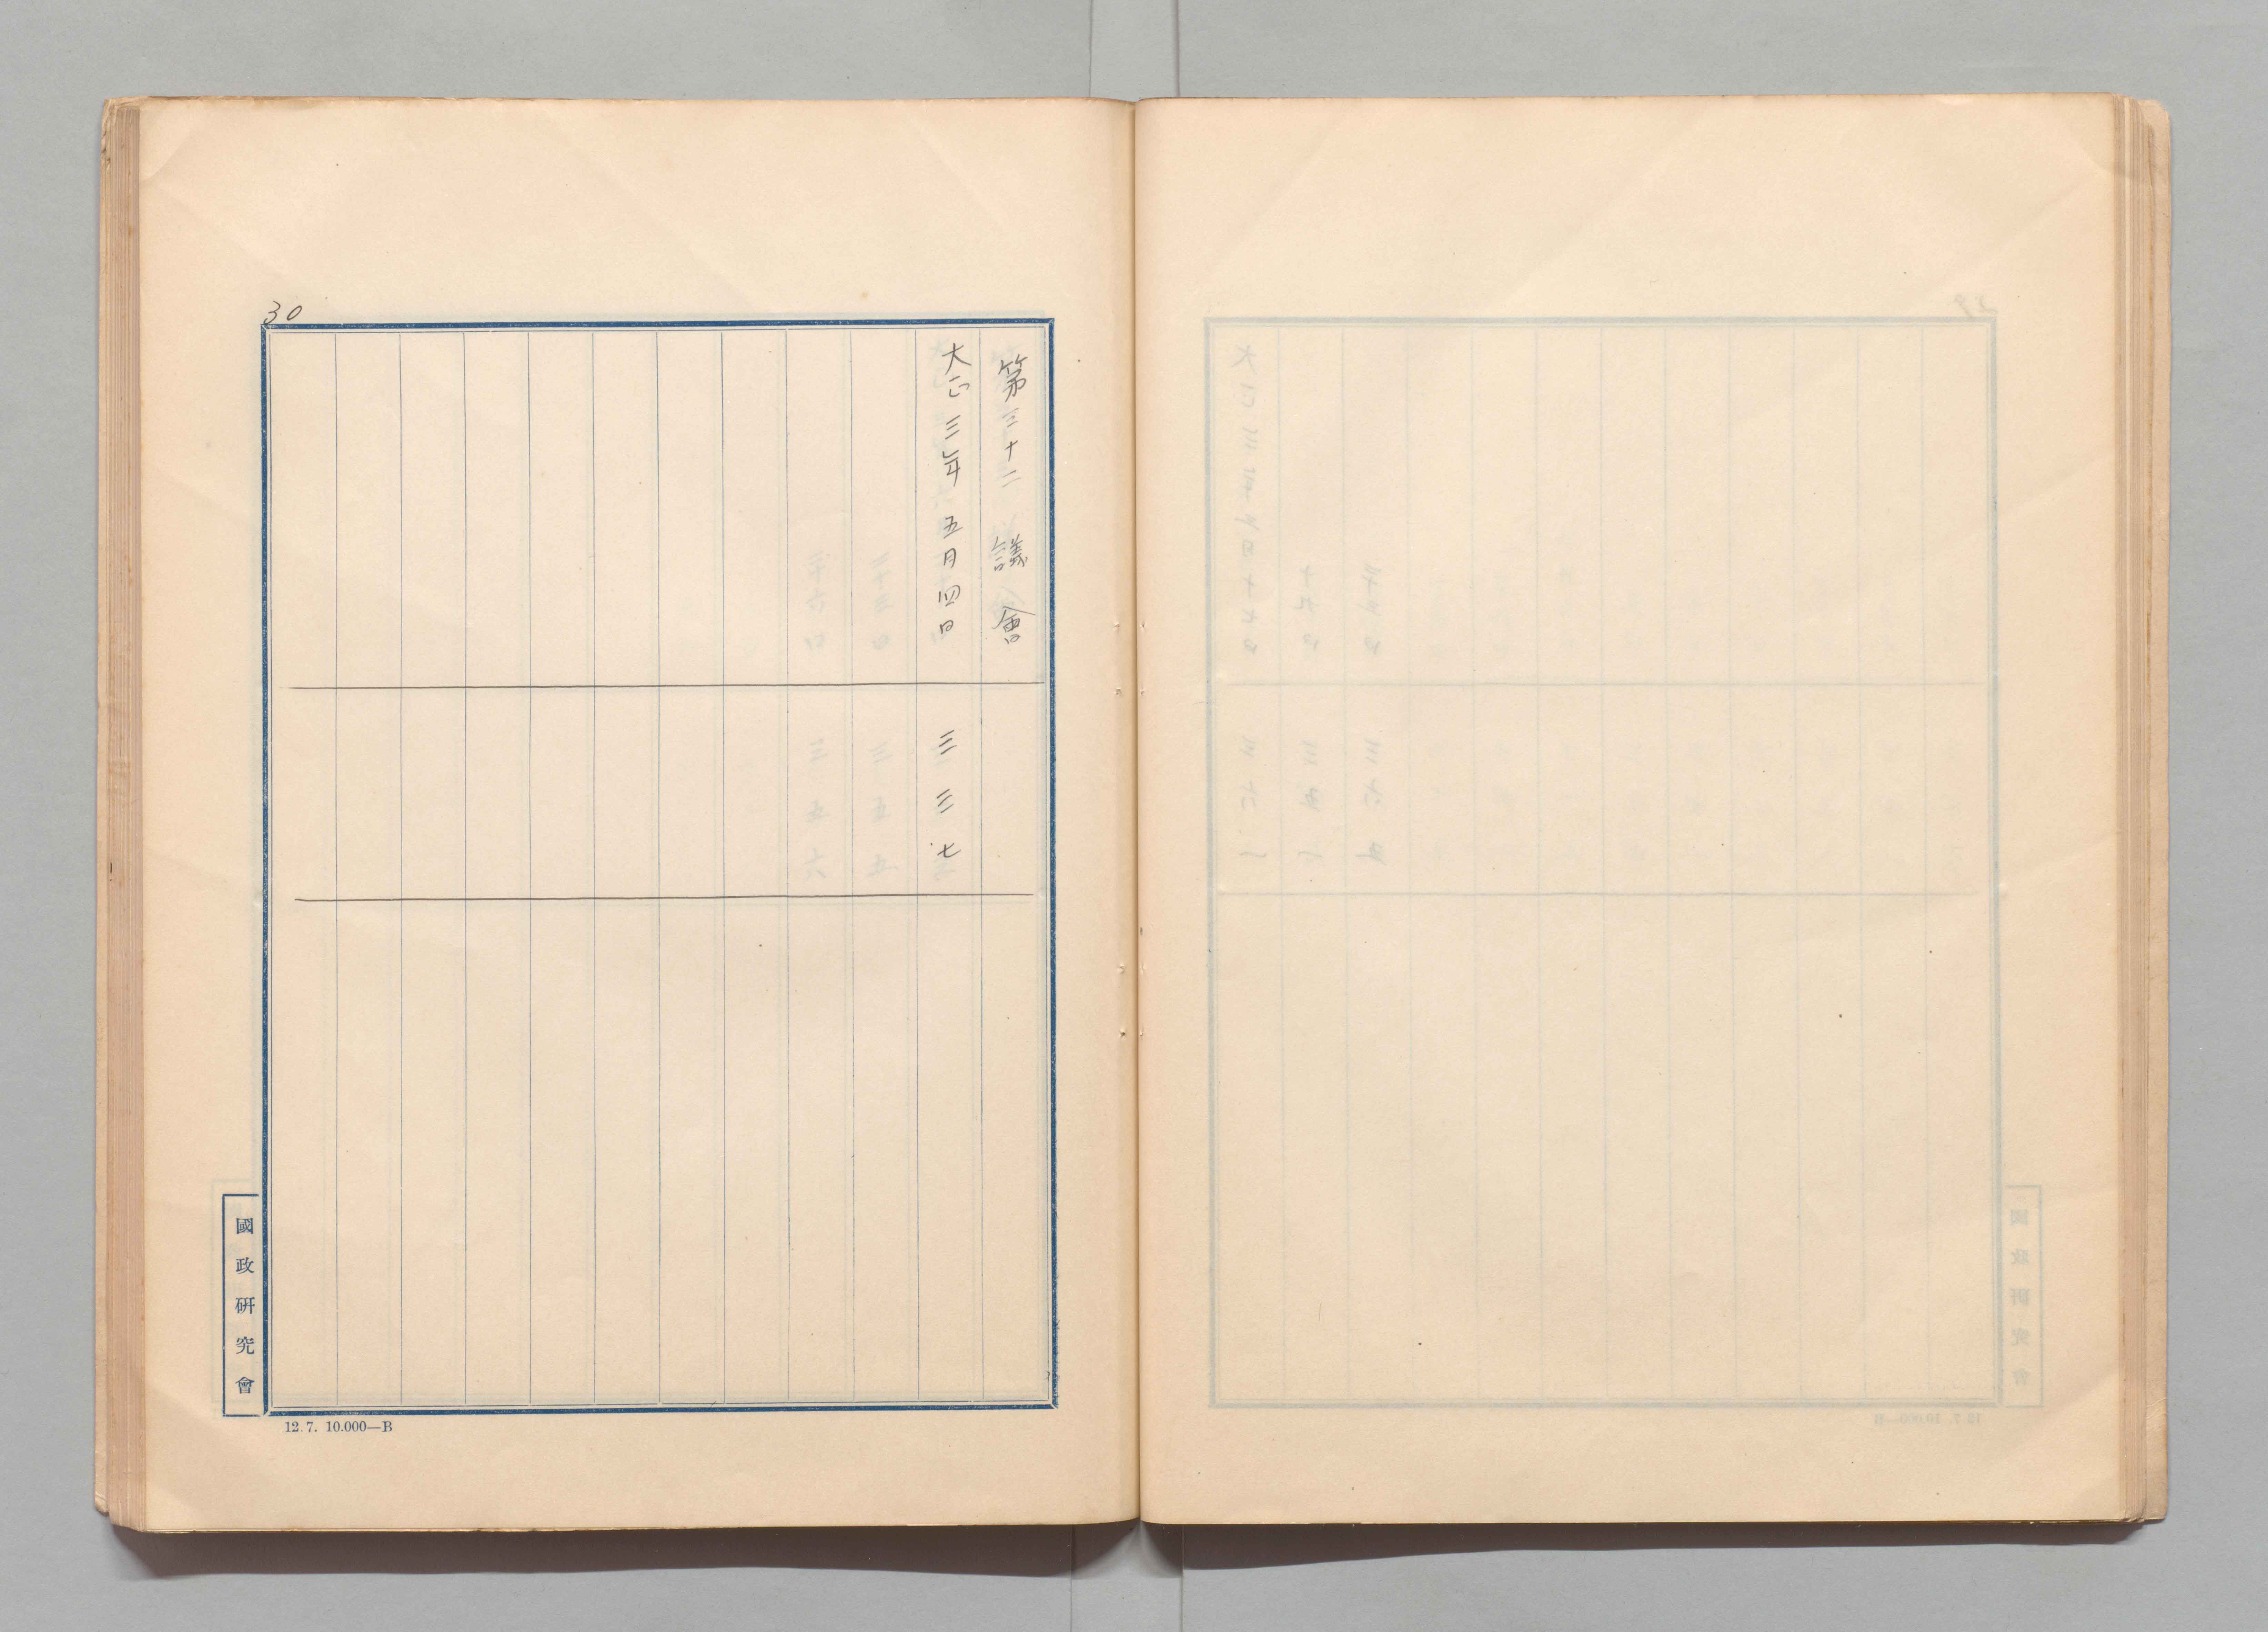 30
第三十二議會
大正三年五月四日
三三七
國政研究會
12.7. 10.000—B